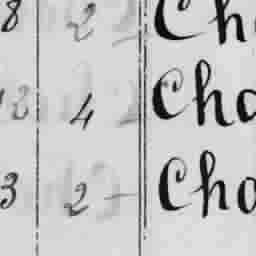 8 2 Cho
12 4 Cho
3 2 Cho